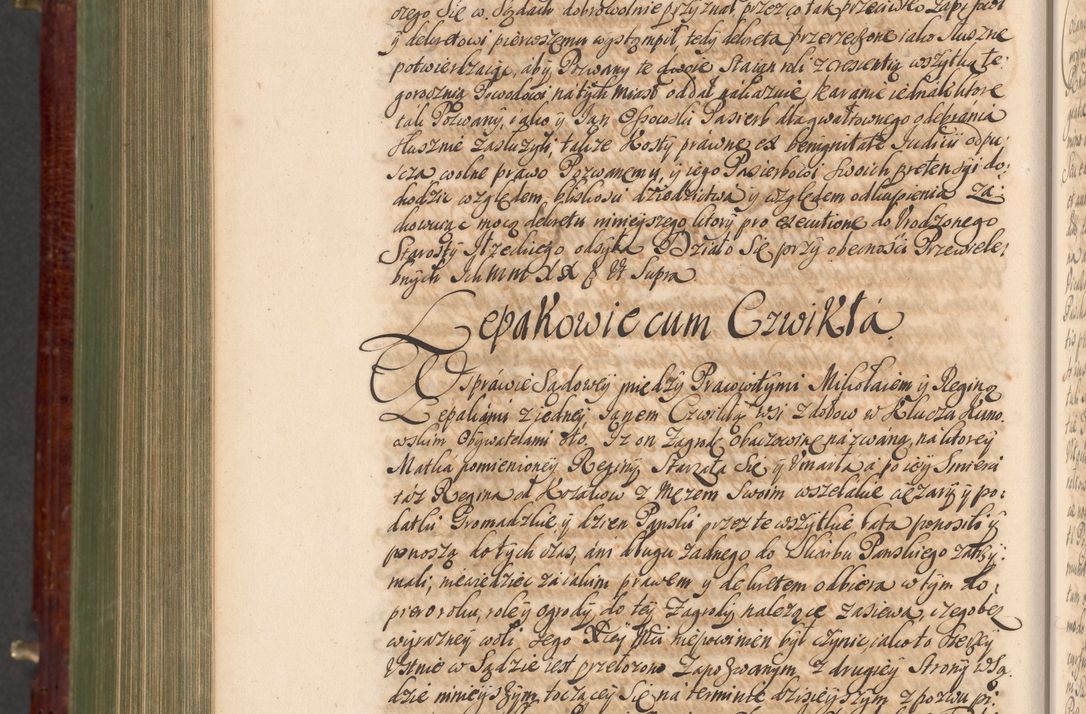 czego Się w Sądach dobrowolnie przyznał przez co tak przeciwko Zapisowi
ÿ dekretowi pierwszemu wystąmpił, tedÿ dekreta przerzeczone iako słuszne
potwierdzaiąc, abÿ Pozwany te dwoie Staian roli z crescentią wszÿtką te-
goroczną Powodowi natÿch miast oddał nakazuie, karanie iednak ktore
tak Pozwany, iako ÿ Jan Ossowski Pasierb dla gwałtownego odebránia
słusznie zasłużÿli, także Koszty prawne ex benignitate Judicii odpu-
szcza wolne prawo Pozwanemu, ÿ iego Pasierbowi Swoich pretensÿi do-
chodzic względem, bliskości dziedzictwa ÿ względem odkupienia Za-
chowuiąc mocą dekretu ninieÿszego ktorÿ pro executione do Urodzonego
Starosty Iłzeckiego odsÿła. Działo Się przÿ obecności Przewiele-
bnÿch Ichmm XX & Ut Supra
Łepakowie cum Czwikłá.
W Spráwie Sądoweÿ międzÿ Prawowitymi Mikołaiem ÿ Reginą
Łepakámi z iedneÿ Janem Czwikłą wsi Zdołow w Kluczu Kuno-
wskim Obÿwatelami oto. Iż on Zagrodę Obaczowinę názwáną, na ktoreÿ
Matka pomienioneÿ Reginÿ Starzała Się ÿ Vmarła a po ieÿ Smierci
táż Regina od Kozakow z Męzem Swoim wszelakie cięzarÿ ÿ po-
datki Gromadzkie ÿ dzien Panski przez te wszÿtkie lata ponosiłÿ ÿ
ponoszą do tÿch czas, áni długu żadnego do Skarbu Panskiego zatrzÿ-
mali, niewiedziec za iakim prawem ÿ dekretem odbiera w tÿm do-
piero roku, role ÿ ogrodÿ do teÿ Zagrodÿ należące zasiewa, czego bez
wÿrazneÿ woli Jego Xcey Mci niepowinien bÿł czÿnic, iako to szerzeÿ
Vstnie w Sądzie iest przełożono Zapozwanÿm z drugieÿ Stronÿ w Są-
dzie mnieÿszÿm toczączeÿ Się na terminie dzisieÿszÿm z pozwu pi-